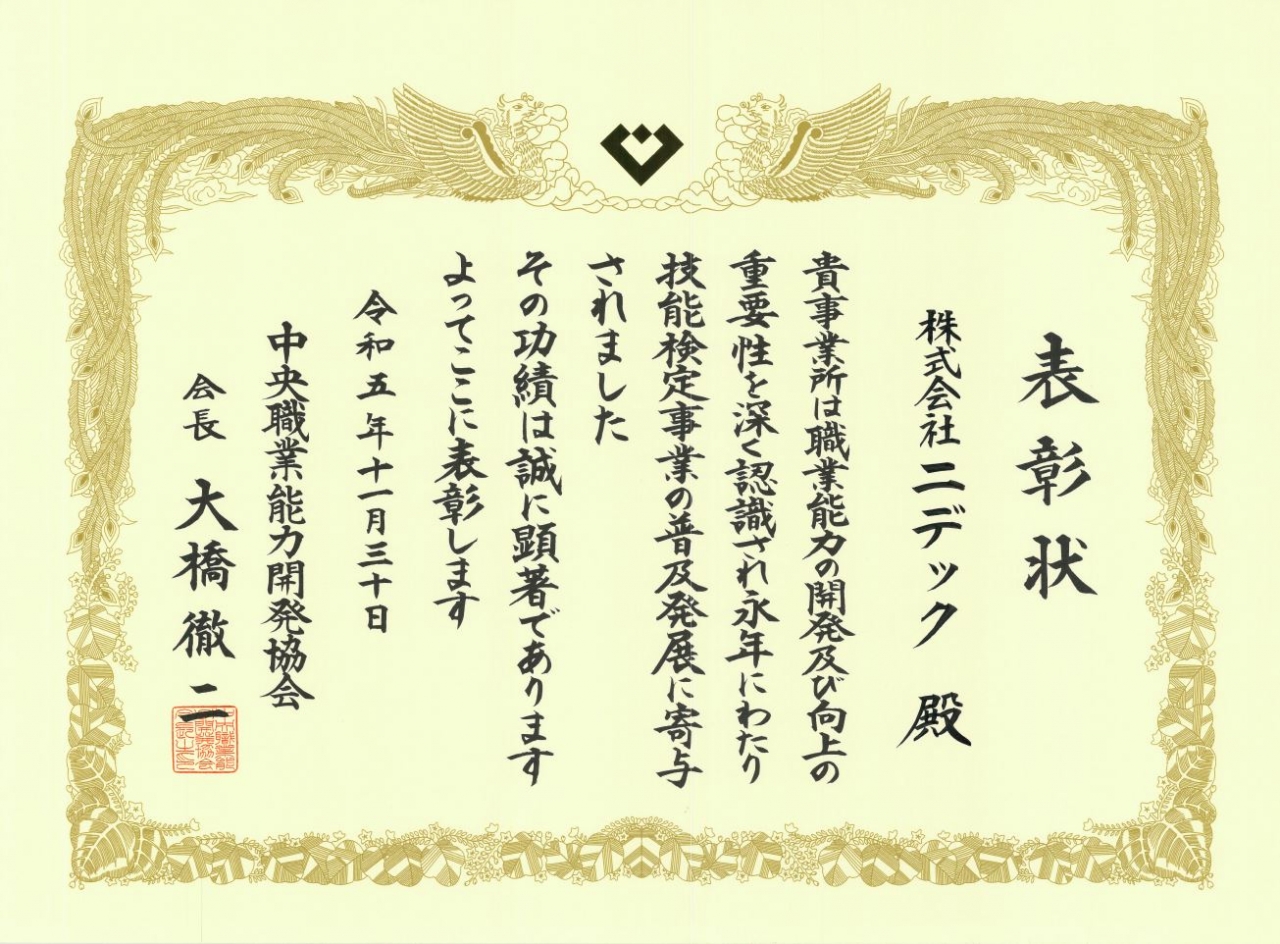 表彰状
株式会社ニデック 殿
貴事業所は職業能力の開発及び向上の
重要性を深く認識され永年にわたり
技能検定事業の普及発展に寄与
されました
その功績は誠に顕著であります
よってここに表彰します
令和五年十一月三十日
中央職業能力開発協会
会長 大橋徹二